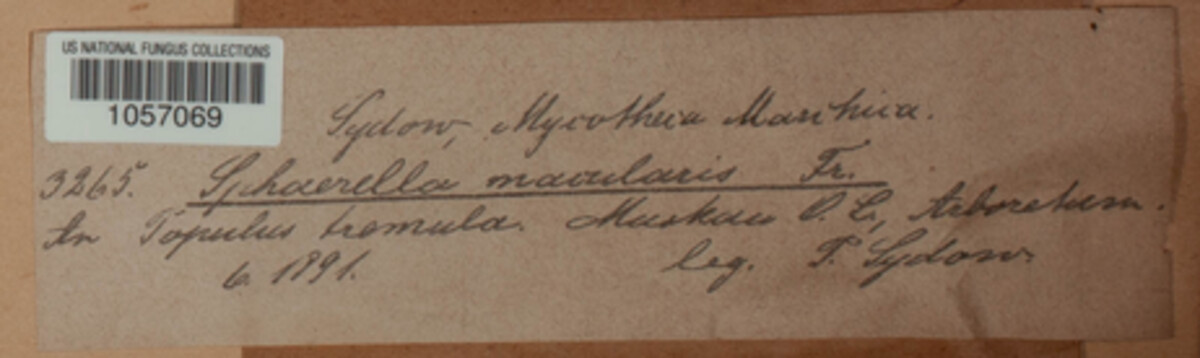 US NATIONAL FUNGUS COLLECTIONS
1057069
Sydow, Mycotheca Marchica.
3265. Sphaerella macularis Fr.
An Populus tremula. Muskau O. L., Arboretum.
6. 1891. leg. P. Sydow.